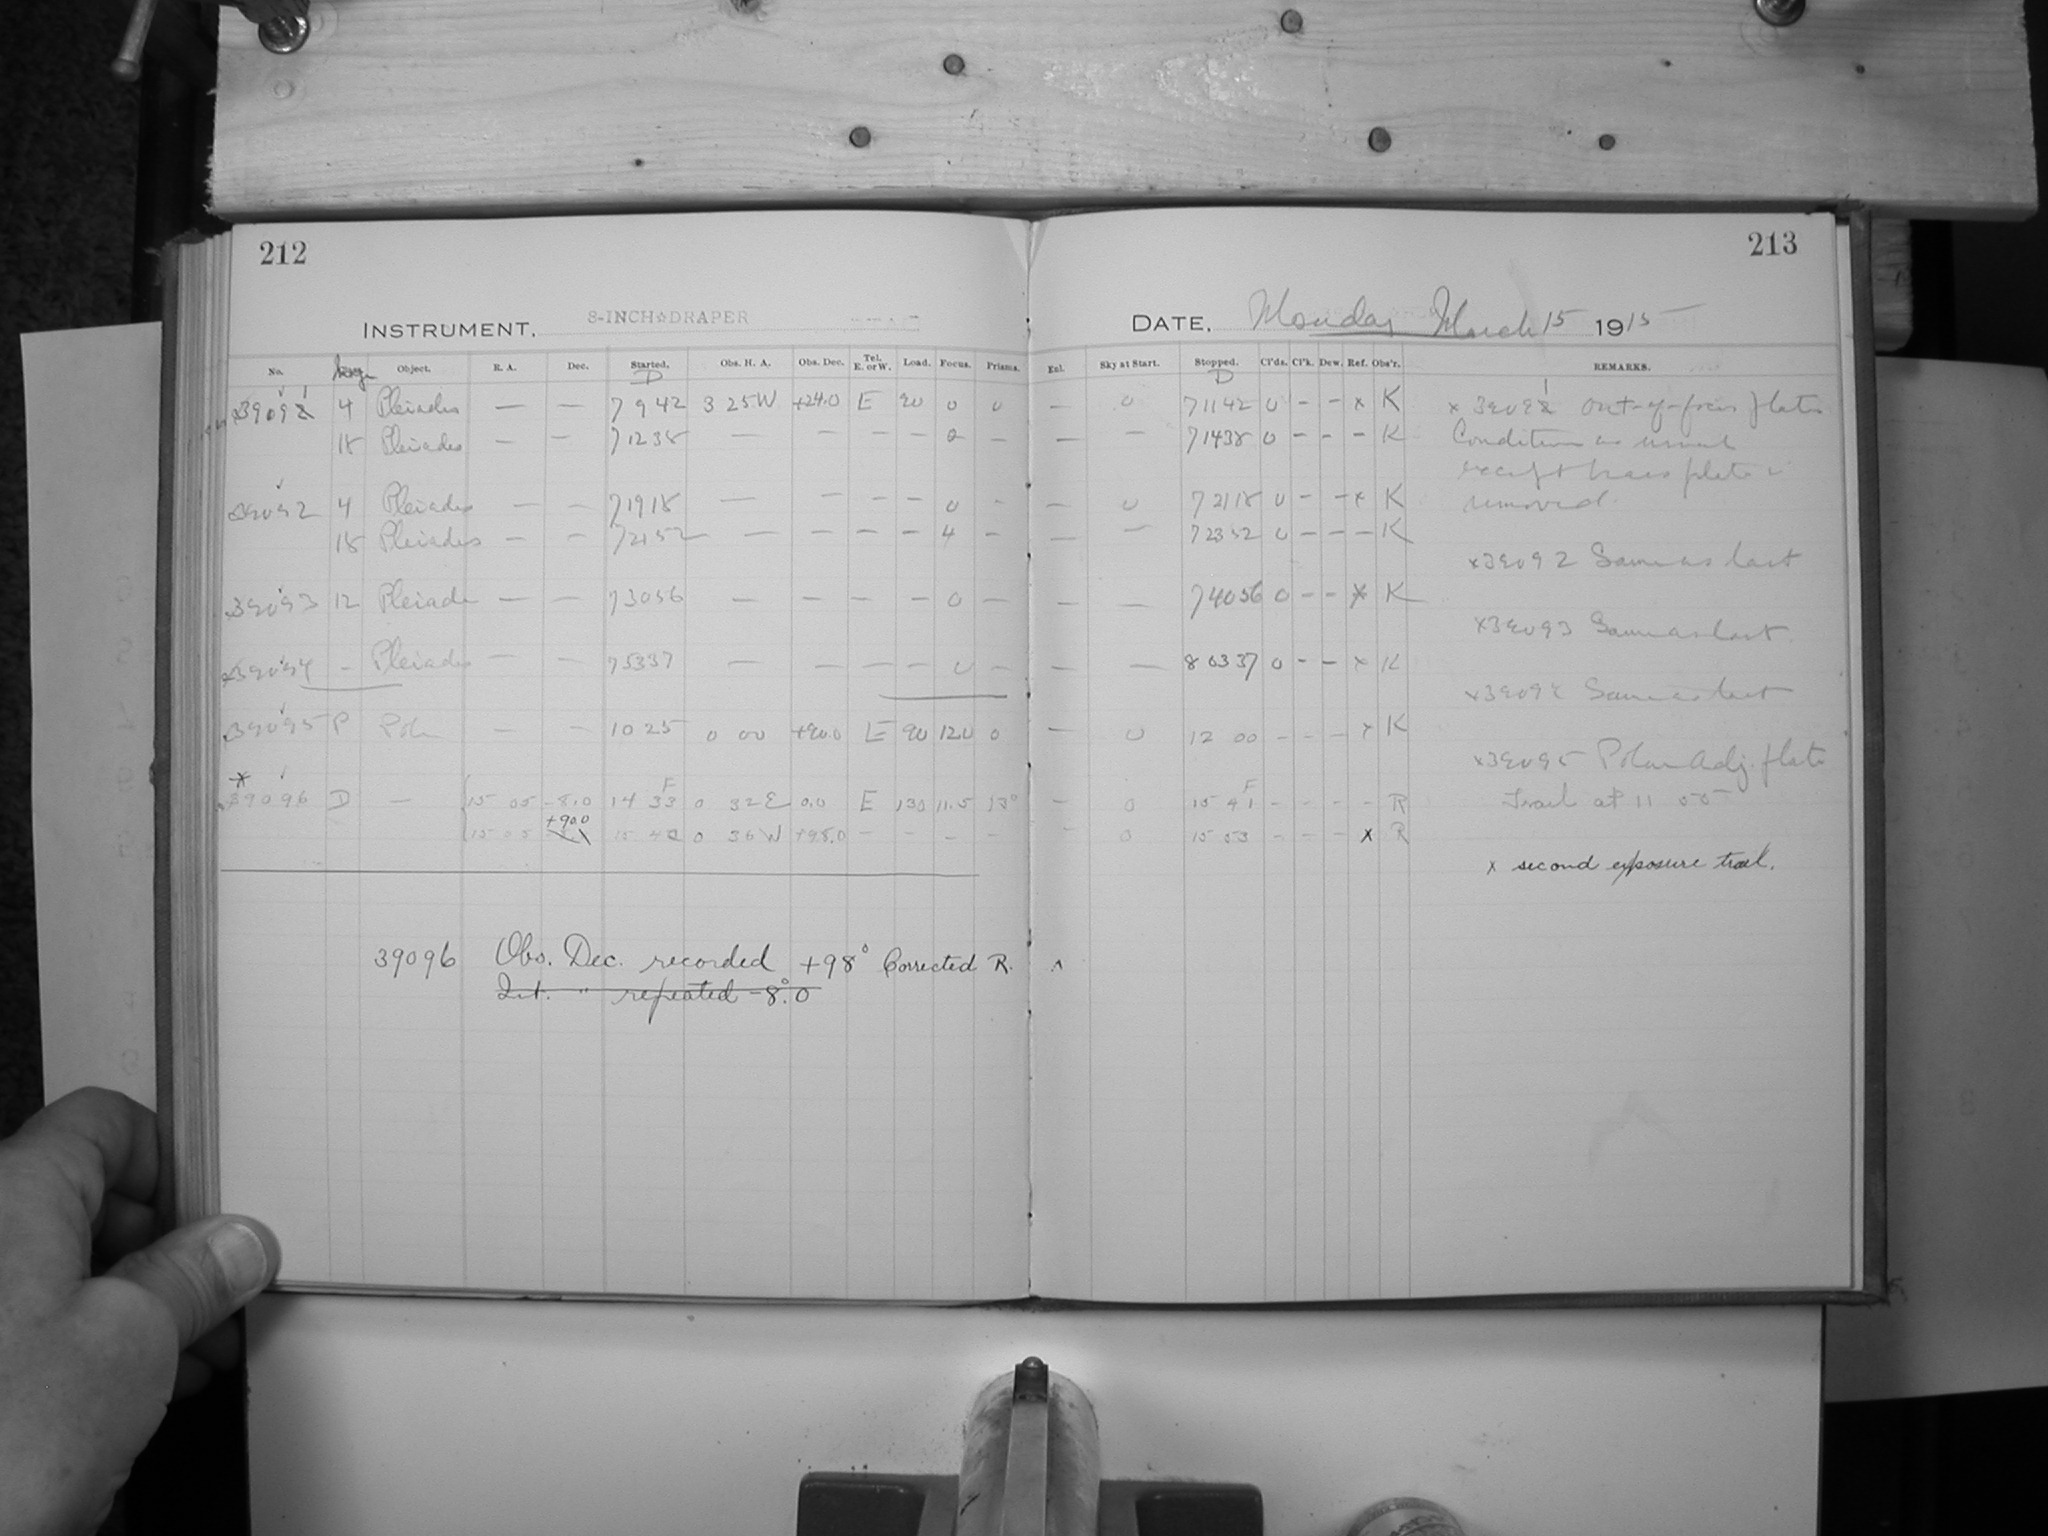 212
213
INSTRUMENT. 8-INCH DRAPER
DATE. Monday March 15 1915
No. Object. R. A. Dec. Started. Obs. H. A. Obs. Dec. Tel. E. or W. Load. Focus. Prisms. Enl. Sky at Start. Stopped. Cl'ds. Cl'k. Dew. Ref. Obs'r. REMARKS.
D D
39091 4 Pleiades — — 7 9 42 3 25 W +24.0 E 90 0 0 — 0 7 11 42 0 - - x K x 39091 Out-of-focus plate
18 Pleiades — — 7 12 38 — — — — 2 — — — 7 14 38 0 - - - K Conditions as usual
except plate
removed
39092 4 Pleiades — — 7 19 18 — — — — 0 - — 0 7 21 18 0 - - x K
18 Pleiades — — 7 21 52 — — — — 4 — — — 7 23 52 0 - - - K
x39092 Same as last
39093 12 Pleiades — — 7 30 56 — — — — 0 — — — 7 40 56 0 - - x K
x39093 Same as last
39094 - Pleiades — — 7 53 37 — — — — 0 — — — 8 03 37 0 - - x K
x39094 Same as last
39095 P Pole — — 10 25 0 00 +90.0 E 90 12.0 0 — 0 12 00 - - - x K
x39095 Polar Adj. plate
Trail at 11 55
F F
39096 D — 15 05 -8.0 14 33 0 32 E 0.0 E 130 11.5 13° — 0 15 41 - - - - R
+90.0
15 05 15 42 0 36 W +98.0 — — — — — 0 15 53 - - - x R
x second exposure trail.
39096 Obs. Dec. recorded +98° Corrected R.
Int. " repeated -8°.0